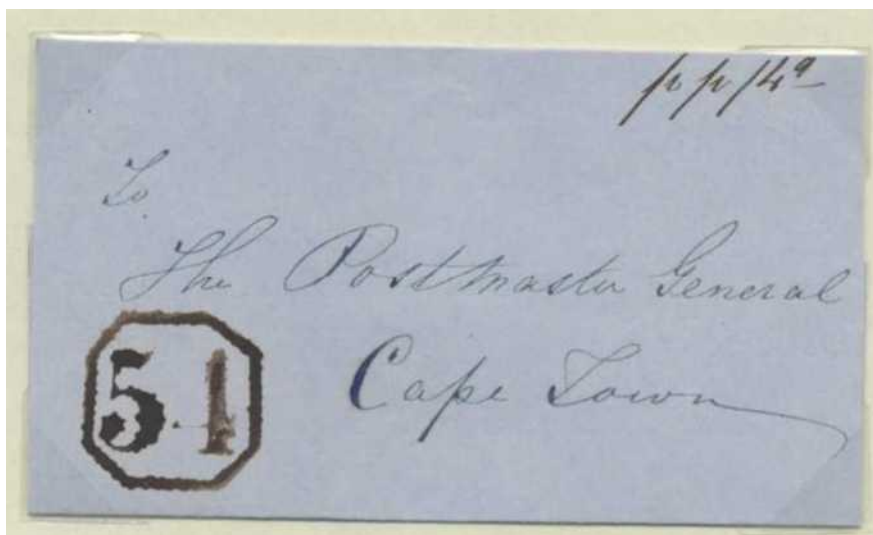 pp/4d
To
The Postmaster General
Cape Town
5.1